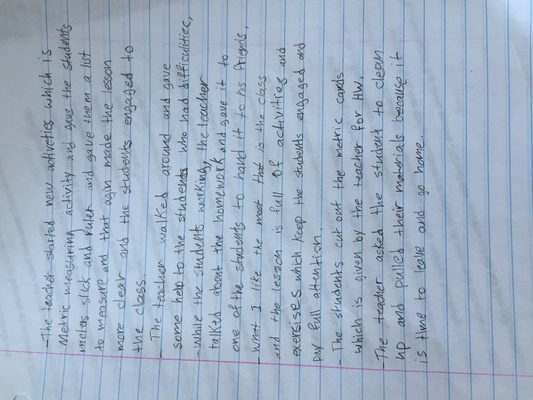 -The teacher started new activeties which is
Metric measuring activity and gave the students
meters stick and ruler and gave them a list
to measure and that agin made the lesson
more clear and the students engaged to
the class.
- The teacher walked around and gave
some help to the students who had difficulties,
-while the students working, the teacher
talked about the homework and gave it to
one of the students to hand it to his friends.
- what I like the most that is the class
and the lesson is full of activities and
exercises which keep the students engaged and
pay full attention.
- The students cut out the metric cards
which is given by the teacher for HW.
-The teacher asked the student to clean
up and pulled their materials because it
is time to leave and go home.